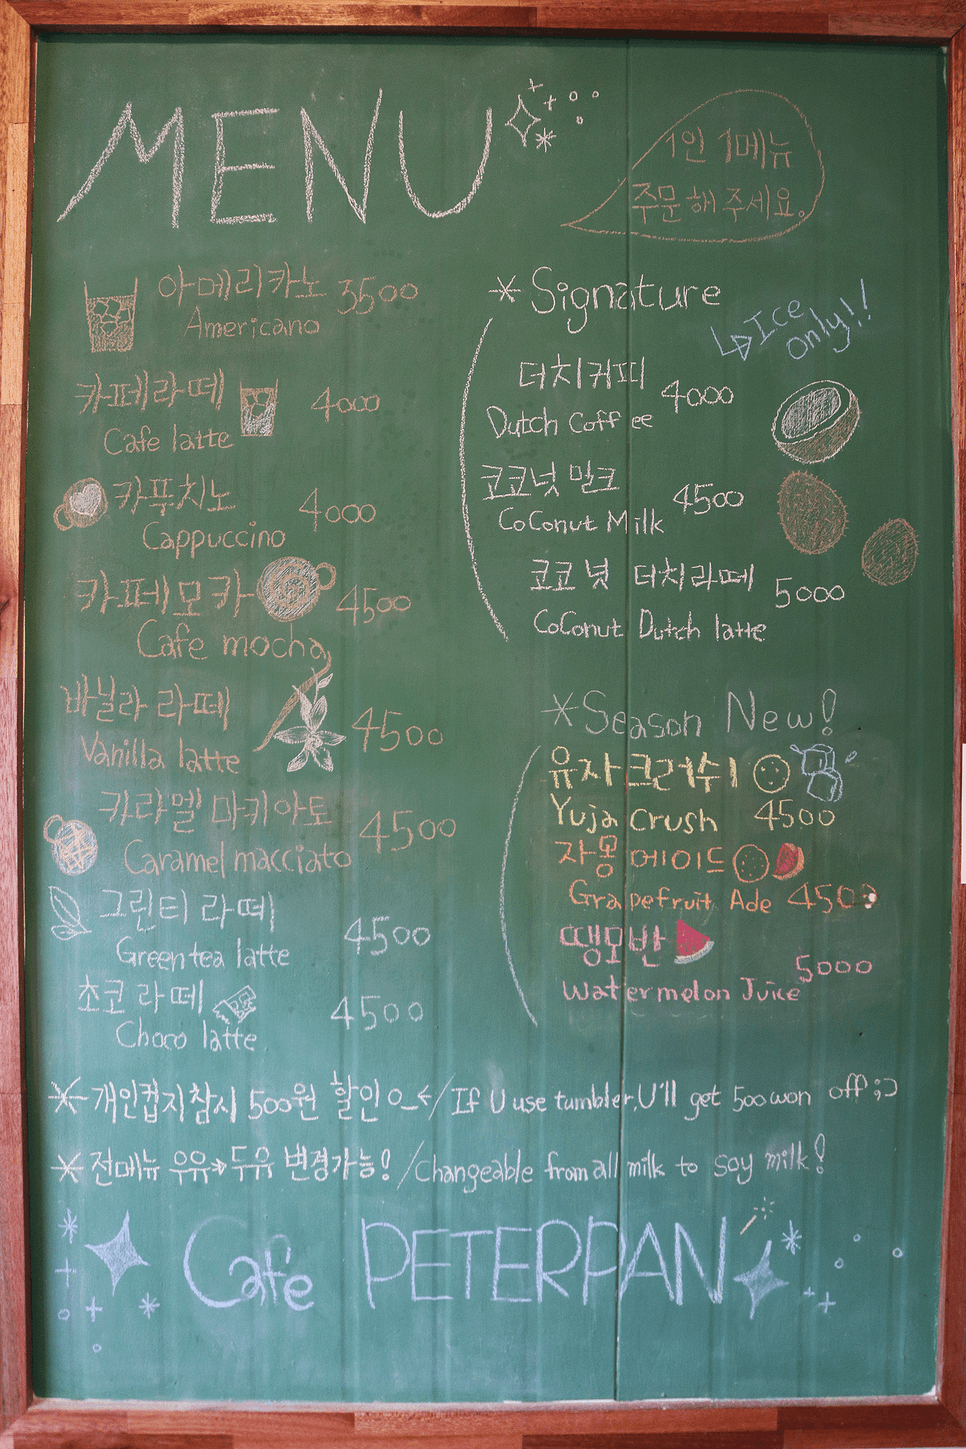 MENU
1인 1메뉴
주문해 주세요.
아메리카노 3500
Americano
카페라떼 4000
Cafe latte
카푸치노 4000
Cappuccino
카페모카 4500
Cafe mocha
바닐라 라떼 4500
Vanilla latte
카라멜 마키아토 4500
Caramel macciato
그린티 라떼 4500
Green tea latte
초코 라떼 4500
Choco latte
*Signature
Ice
only!!
더치커피 4000
Dutch Coffee
코코넛 밀크 4500
CoConut Milk
코코넛 더치라떼 5000
CoConut Dutch latte
*Season New!
유자크러쉬
Yuja crush 4500
자몽에이드
Grapefruit Ade 4500
땡모반
Watermelon Juice 5000
* 개인컵지참시 500원 할인 / If U use tumbler, U'll get 500won off ;)
* 전메뉴 우유→두유 변경가능! / changeable from all milk to soy milk!
Cafe PETERPAN